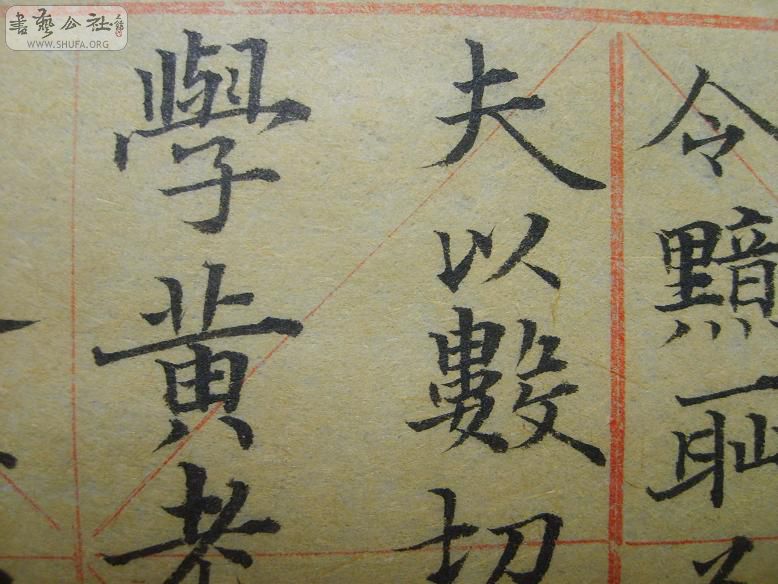 書藝公社
WWW.SHUFA.ORG
令黯耻
夫以數切
學黄老